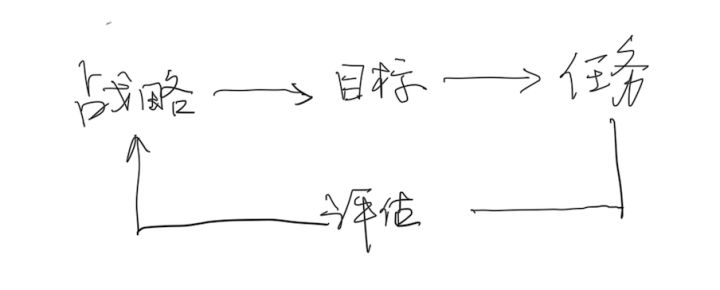 战略 目标 任务
评估